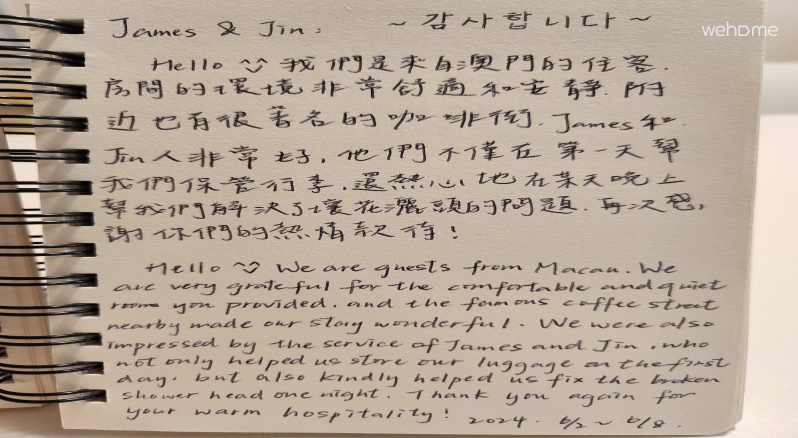 wehome
James & Jin:   ~ 감사합니다 ~
Hello 我們是來自澳門的住客.
房間的環境非常舒適和安靜. 附
近也有很著名的咖啡街. James和.
Jin人非常好, 他們不僅在第一天幫
我們保管行李, 還熱心地在某天晚上
幫我們解決了壞花灑頭的問題. 再次感
謝你們的熱情款待!
Hello We are guests from Macau. We
are very grateful for the comfortable and quiet
room you provided. and the famous coffee street
nearby made our stay wonderful. We were also
impressed by the service of James and Jin, who
not only helped us store our luggage on the first
day. but also kindly helped us fix the broken
shower head one night. Thank you again for
your warm hospitality! 2024. 6/2 ~ 6/8.